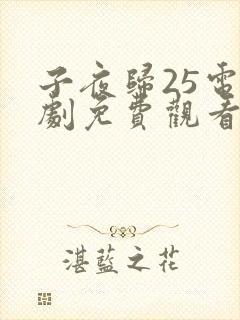 子夜歸25電
劇免費觀看
湛藍之花